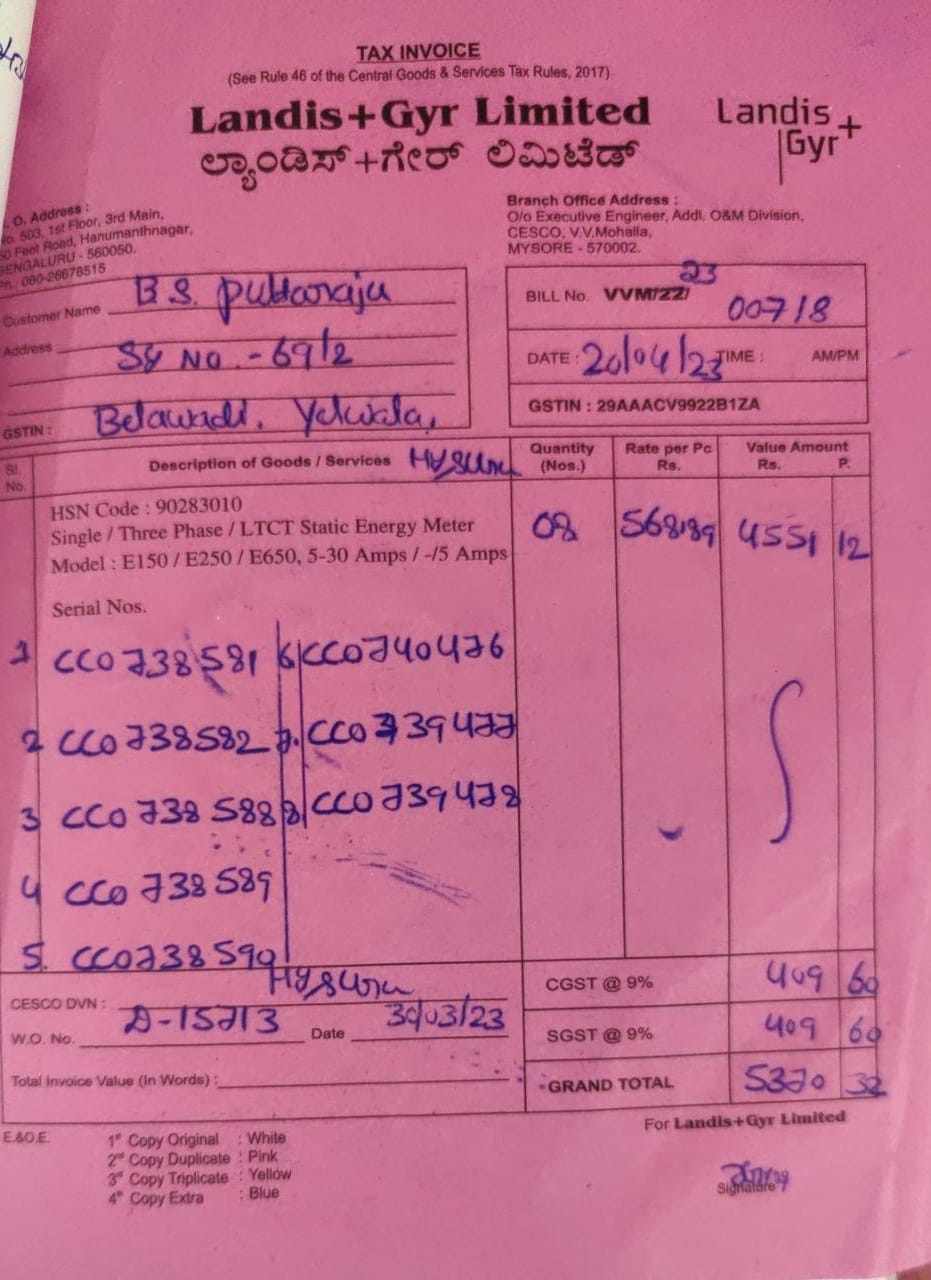 TAX INVOICE
(See Rule 46 of the Central Goods & Services Tax Rules, 2017)
Landis+Gyr Limited
ಲ್ಯಾಂಡಿಸ್+ಗೇರ್ ಲಿಮಿಟೆಡ್
Landis
Gyr+
O. Address :
No. 503, 1st Floor, 3rd Main,
Feet Road, Hanumanthnagar,
BENGALURU - 560050.
Ph.: 080-26678515
Branch Office Address :
O/o Executive Engineer, Addl. O&M Division,
CESCO, V.V.Mohalla,
MYSORE - 570002.
Customer Name B S. Puttaraju
Address Sy No. - 69/2
GSTIN : Belawadi. Yelwala,
Mysuru
BILL No. VVM/22/ 23 00718
DATE : 20/04/23 TIME : AM/PM
GSTIN : 29AAACV9922B1ZA
Sl. No. Description of Goods / Services Quantity (Nos.) Rate per Pc Rs. Value Amount Rs. P.
HSN Code : 90283010
Single / Three Phase / LTCT Static Energy Meter
Model : E150 / E250 / E650, 5-30 Amps / -/5 Amps
08 568.89 4551 12
Serial Nos.
1 CC0738581 6 CC0740476
2 CC0738582 7. CC0739477
3 CC0738588 8 CC0739478
4 CC0738589
5. CC0738590
CESCO DVN : Mysuru
W.O. No. D-15713 Date 30/03/23
Total Invoice Value (In Words) :
CGST @ 9% 409 60
SGST @ 9% 409 60
GRAND TOTAL 5370 32
E.&O.E.
1st Copy Original : White
2nd Copy Duplicate : Pink
3rd Copy Triplicate : Yellow
4th Copy Extra : Blue
For Landis+Gyr Limited
Signature